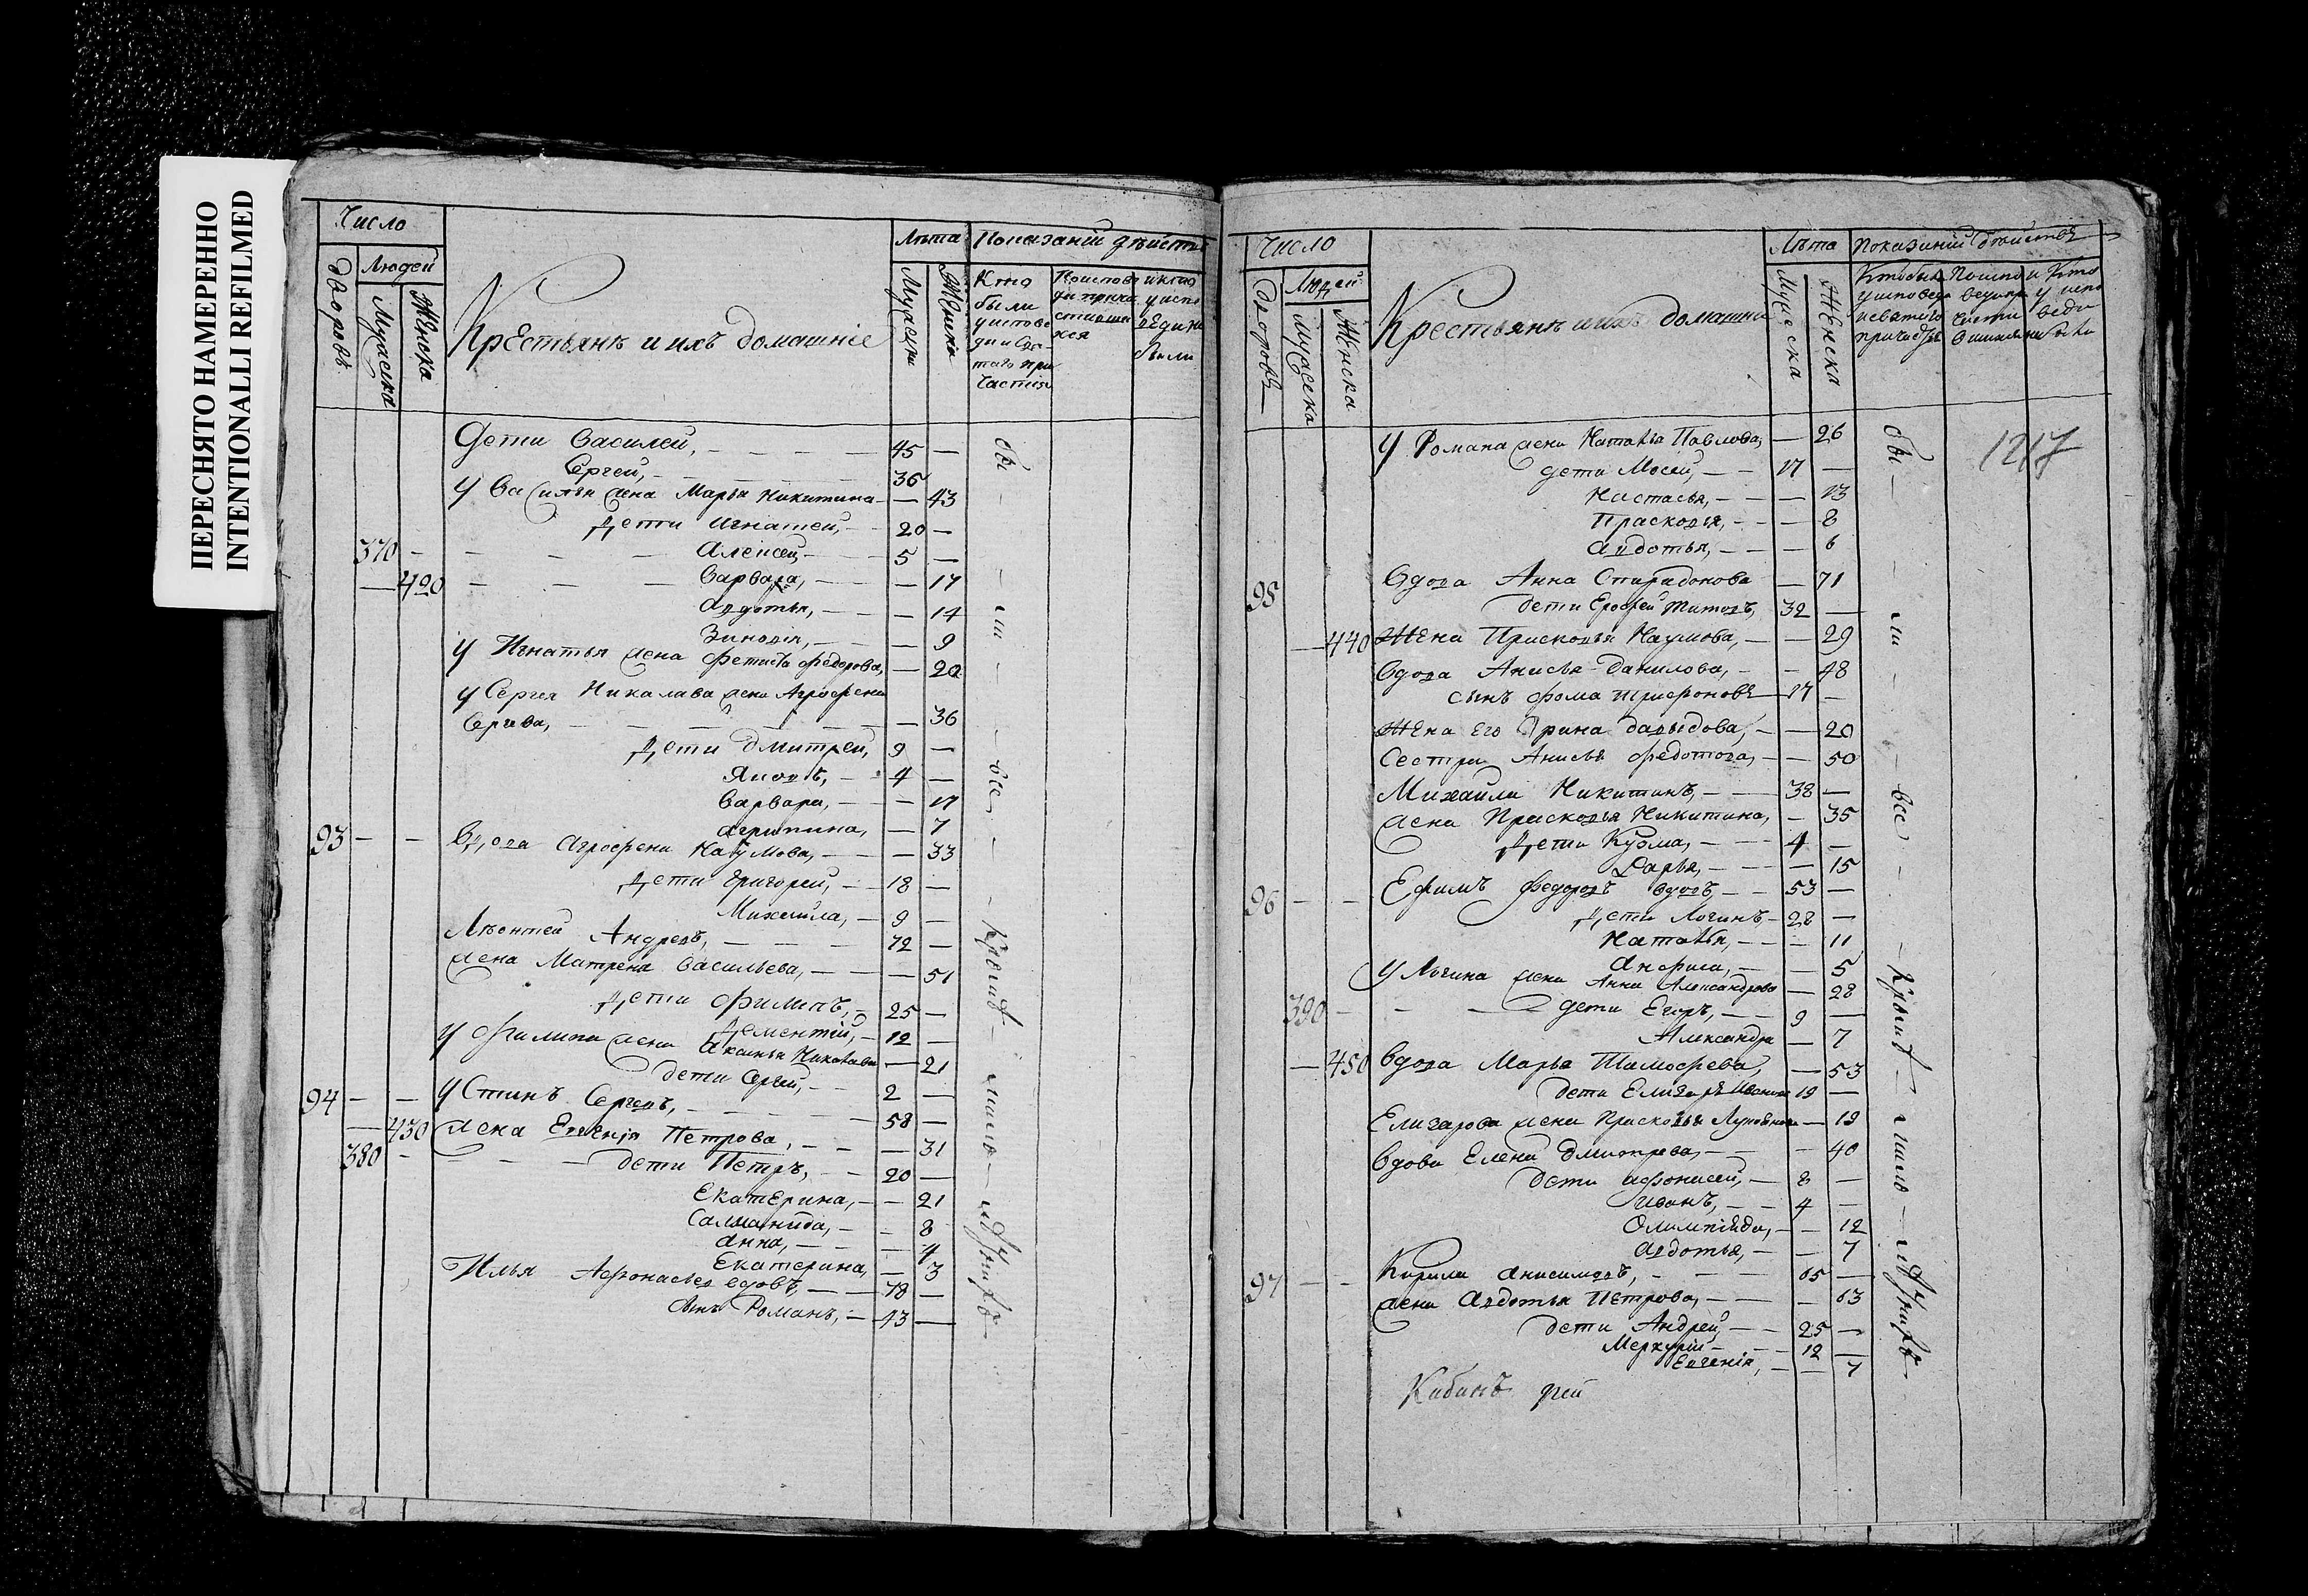 ПЕРЕСНЯТО НАМЕРЕННО
INTENTIONALLI REFILMED
Число
Людей
Дворовъ
Мужеска
Женска
Крестьянъ и ихъ домашніе
Лѣта
Мужески
Женски
Показаній дѣйств
Кто были у исповеди и Святаго причастия
Дети Василей, 45 —
Сергей, 36
У Василья жена Марья Никитина — 43
Дети Игнатей, 20 —
370 — Алексей, 5 —
— 420 — Варвара, — 17
Авдотья, — 14
Зиновія, — 9
У Игнатья жена Фетисья Федорова, — 20
У Сергея Никалава жена Агрофена
Сергева, — 36
Дети Дмитрей, 9 —
Яковъ, 4 —
Варвара, — 17
Агрипина, — 7
93 — — Вдова Агрофена Наумова, — 33
Дети Григорей, 18 —
Михаила, 9 —
Лѣонтей Андревъ, 72 —
жена Матрена Васильева, — 51
Дети Филипъ, 25 —
Дементій, 12 —
У Филипа жена Аксинья Никалаева — 21
дети Сергей, 2 —
94 — — Устинъ Сергевъ, 58 —
— 430 жена Евгенія Петрова, — 31
380 — дети Петръ, 20 —
Екатерина, — 21
Саламанида, — 8
Анна, — 4
Екатерина, — 3
Илья Афонасьев вдовъ, 78 —
Сынъ Романъ, 43 —
бы — ли — все — — — — —
Число
Людей
Дворовъ
Мужеска
Женска
Крестьянъ и ихъ домашни
Лѣта
Мужеска
Женска
Показаній дѣйства
1217
У Романа жена Наталья Павлова, — 26
дети Мосей, 17 —
Настасья, — 13
Прасковія, — 8
Авдотья, — 6
95 Вдова Анна Спиридонова — 71
дети Ерофей Титовъ, 32 —
— 440 Жена Прасковья Наумова, — 29
Вдова Анисья Данилова, — 48
сынъ Фома Трифоновъ 17 —
Жена его Орина Давыдова, — 20
Сестра Анисья Федотова, — 50
Михайла Никитинъ, 38 —
жена Прасковья Никитина, — 35
Дети Кузма, 4 —
Дарья, — 15
96 — — Ефимъ Федоровъ вдовъ 53 —
Дети Логинъ 28 —
Наталья, — 11
Анфиса, — 5
У Логина жена Анна Александрова — 28
390 — дети Егоръ, 9 —
Александра — 7
— 450 Вдова Марья Тимофеева, — 53
дети Елизаръ Ивановъ 19 —
Елизарова жена Прасковья — 19
Вдова Елена Дмитрева, — 40
дети Афонасей, 8 —
Иванъ, 4 —
Олимпіяда, — 12
Авдотья, — 7
97 — — Кирила Анисимовъ, 65 —
жена Авдотья Петрова, — 63
дети Андрей, 25 —
Меркурій 12 —
Евгенія, — 7
бы — ли — все — — — — —